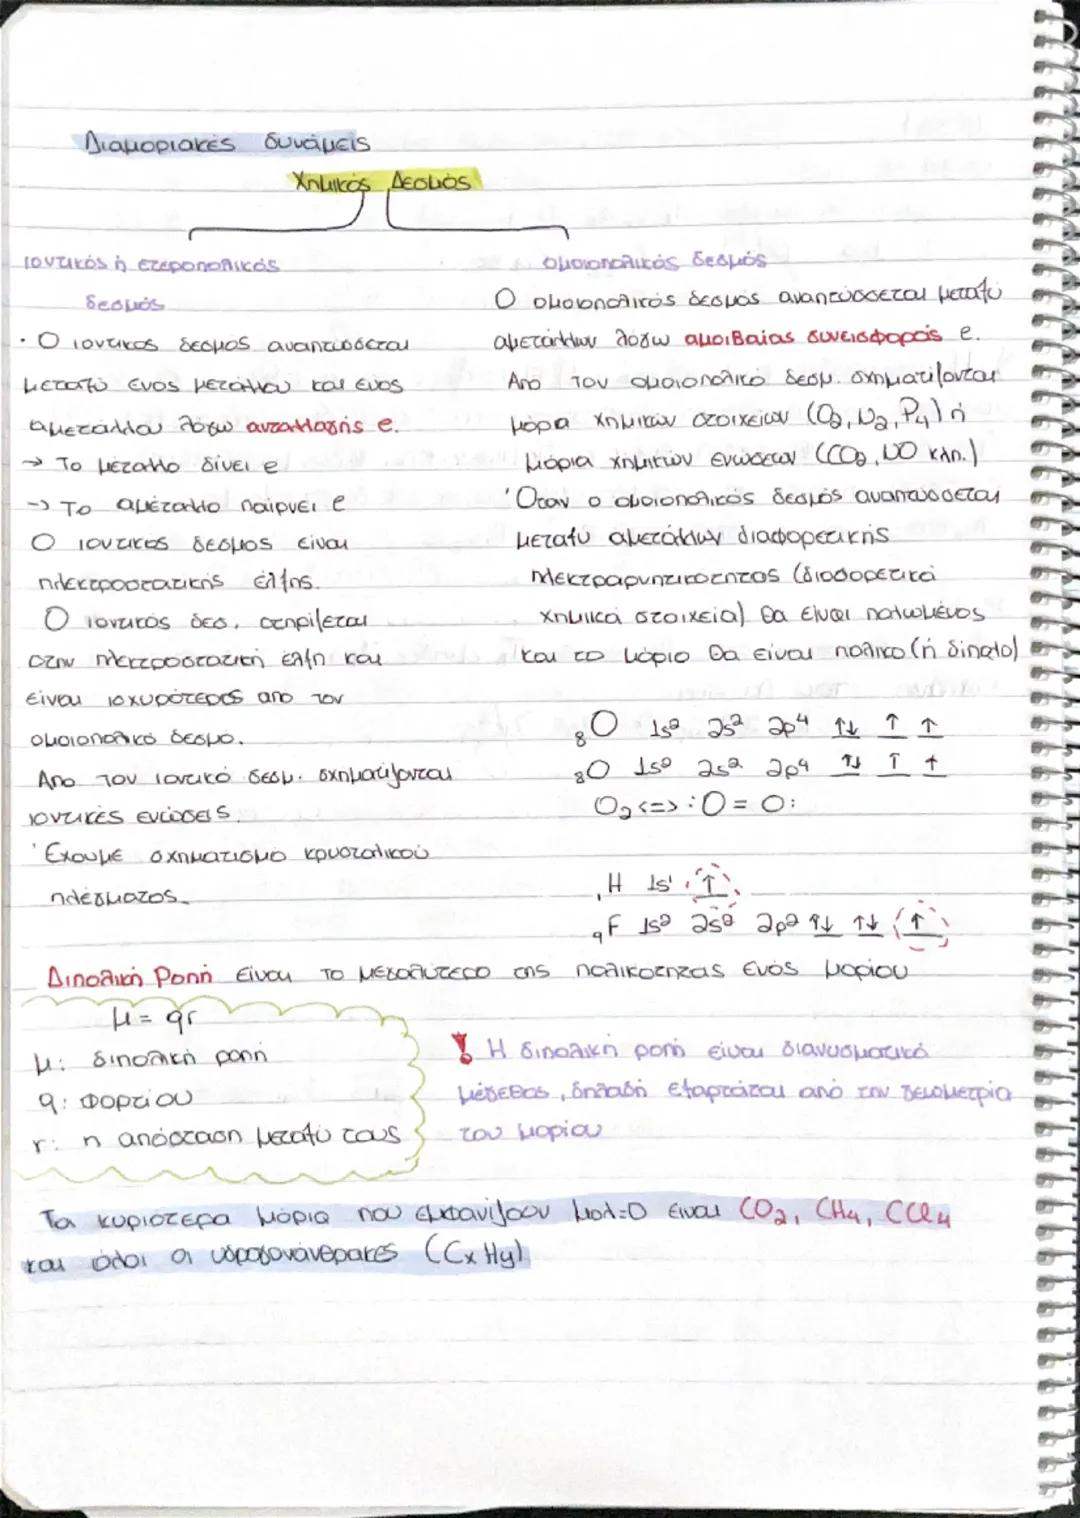 Διαμοριακές δυνάμεις
Χημικός Δεσμός
ιοντικός ή ετεροπολικός
δεσμός
· Ο ιοντικός δεσμός αναπτύσσεται
μεταξύ ενός μετάλλου και ενός
αμετάλλου λόγω ανταλλαγής e.
→ Το μέταλλο δίνει e
→ Το αμέταλλο παίρνει e
Ο ιοντικός δεσμός είναι
ηλεκτροστατικής έλξης.
Ο ιοντικός δεσ. στηρίζεται
στην ηλεκτροστατική έλξη και
είναι ισχυρότερος απο τον
ομοιοπολικό δεσμο.
Απο τον ιοντικό δεσμ. σχηματίζονται
ιοντικές ενώσεις.
Έχουμε σχηματισμο κρυσταλικού
πλέγματος.
ομοιοπολικός δεσμός
Ο ομοιοπολικός δεσμός αναπτύσσεται μεταξύ
αμετάλλων λόγω αμοιβαίας συνεισφοράς e.
Απο τον ομοιοπολικο δεσμ. σχηματίζονται
μόρια χημικών στοιχείων (O₂, N₂, P₄) ή
μόρια χημικών ενώσεων (CO₂, NO κλπ.)
Όταν ο ομοιοπολικός δεσμός αναπτύσσεται
μεταξύ αμετάλλων διαφορετικής
ηλεκτραρνητικοτητας (διαφορετικά
χημικά στοιχεία) θα είναι πολωμένος
και το μόριο θα είναι πολικο (ή δίπολο)
₈O 1s² 2s² 2p⁴ ↑↓ ↑ ↑
₈O 1s² 2s² 2p⁴ ↑↓ ↑ ↑
O₂ <=> :O = O:
₁H 1s¹ ↑
₉F 1s² 2s² 2p² ↑↓ ↑↓ ↑
Διπολική Ροπή είναι το μεγαλύτερο της πολικοτητας ενός μορίου
μ = qr
μ: διπολική ροπή
q: φορτίου
r: η απόσταση μεταξύ τους
! Η διπολική ροπή είναι διανυσματικό
μέγεθος, δηλαδή εξαρτάται από την γεωμετρία
του μορίου
Τα κυριότερα μόρια που εμφανίζουν μολ=0 είναι CO₂, CH₄, CCl₄
και όλοι οι υδρογονάνθρακες (CxHy)